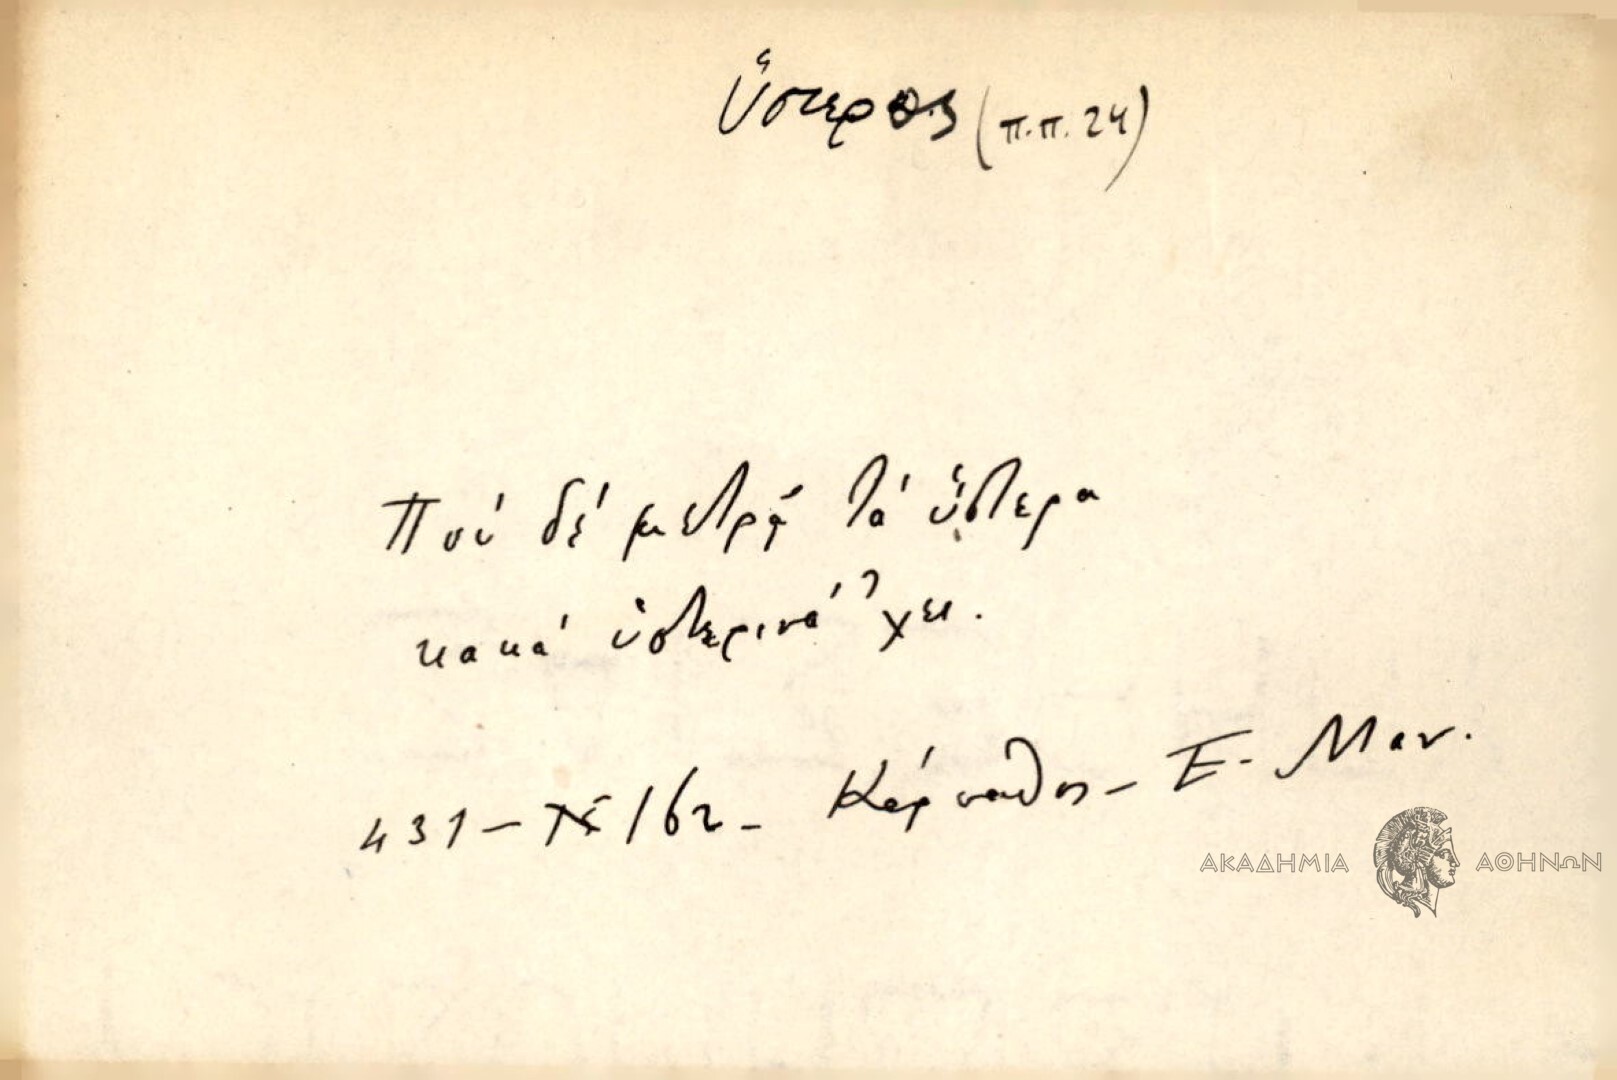 ὕστερος (π.π. 24)
Πού δέ μετρᾷ τά ὕστερα
κακά ὑστερινά ’χει.
431 – /62 – Κάρπαθος – Ε. Μαν.
ΑΚΑΔΗΜΙΑ ΑΘΗΝΩΝ